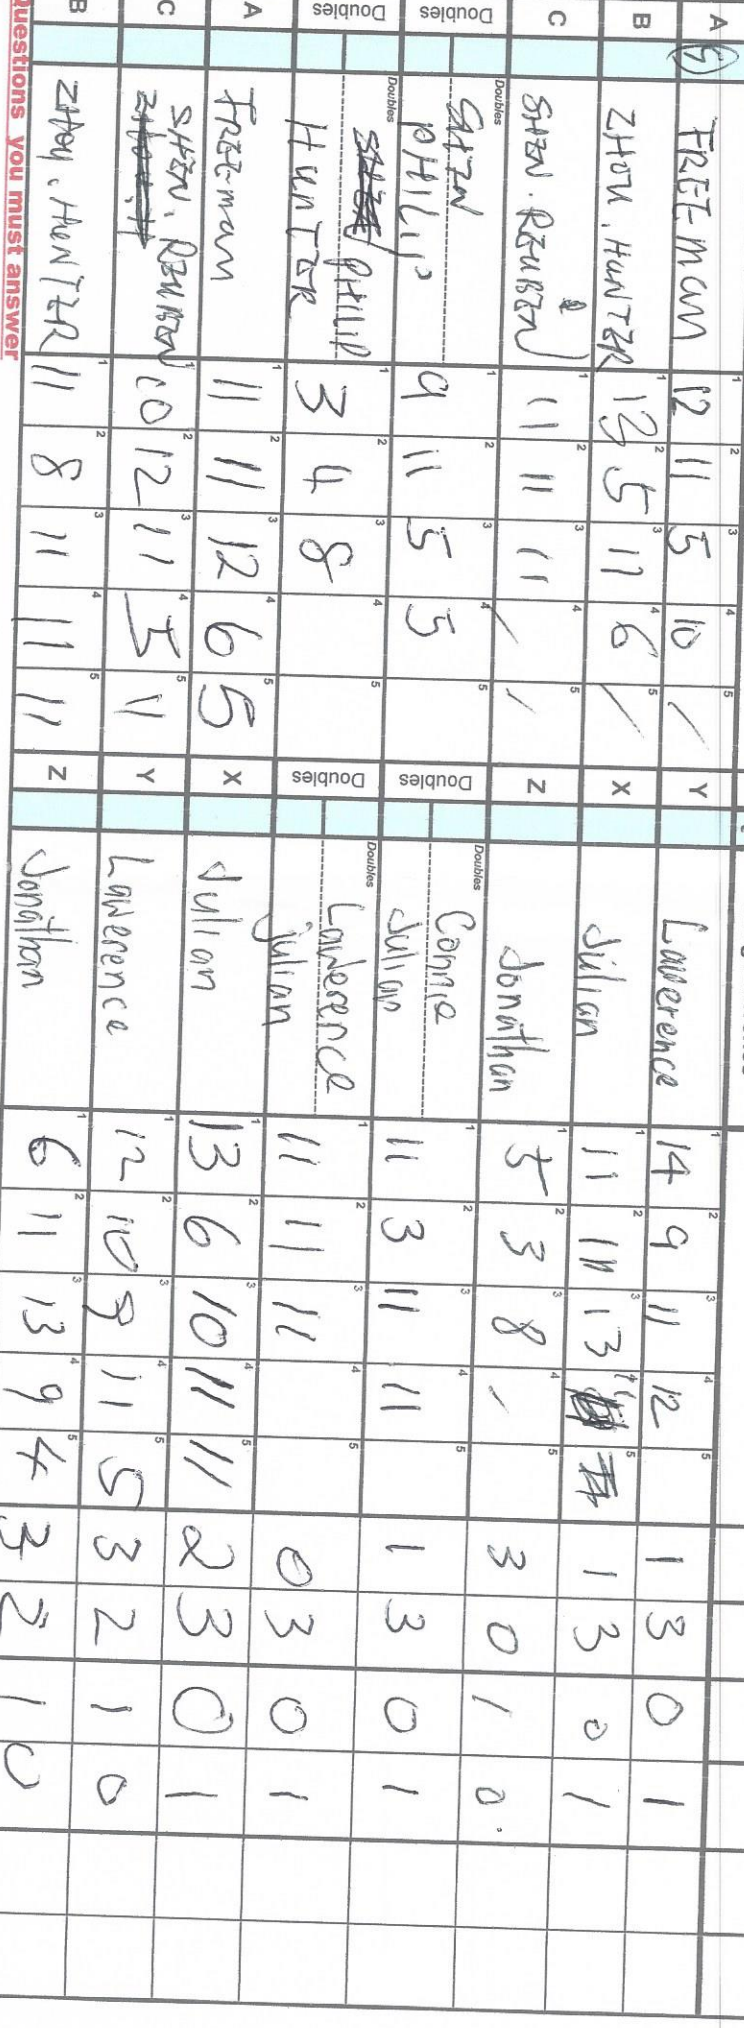 A 5 FREEman 12 11 5 10 / Y Lawerence 14 9 11 12 1 3 0 1
B ZHOU. HUNTER 13 5 11 6 / X Julian 11 11 13 11 1 3 0 1
C SHEN. REUBEN 11 11 11 / / Z Jonathan 5 3 8 / 3 0 1 0
Doubles Doubles SHEN Doubles Doubles Connie
PHILIP 9 11 5 5 Julian 11 3 11 11 1 3 0 1
Doubles Doubles PHILIP Doubles Doubles Lawerence
HUNTER 3 4 8 Julian 11 11 11 0 3 0 1
A FREEman 11 11 12 6 5 X Julian 13 6 10 11 11 2 3 0 1
C SHEN. REUBEN 10 12 11 5 11 Y Lawerence 12 10 9 11 5 3 2 1 0
B ZHOU. HUNTER 11 8 11 11 11 Z Jonathan 6 11 13 9 4 3 2 1 0
Questions you must answer